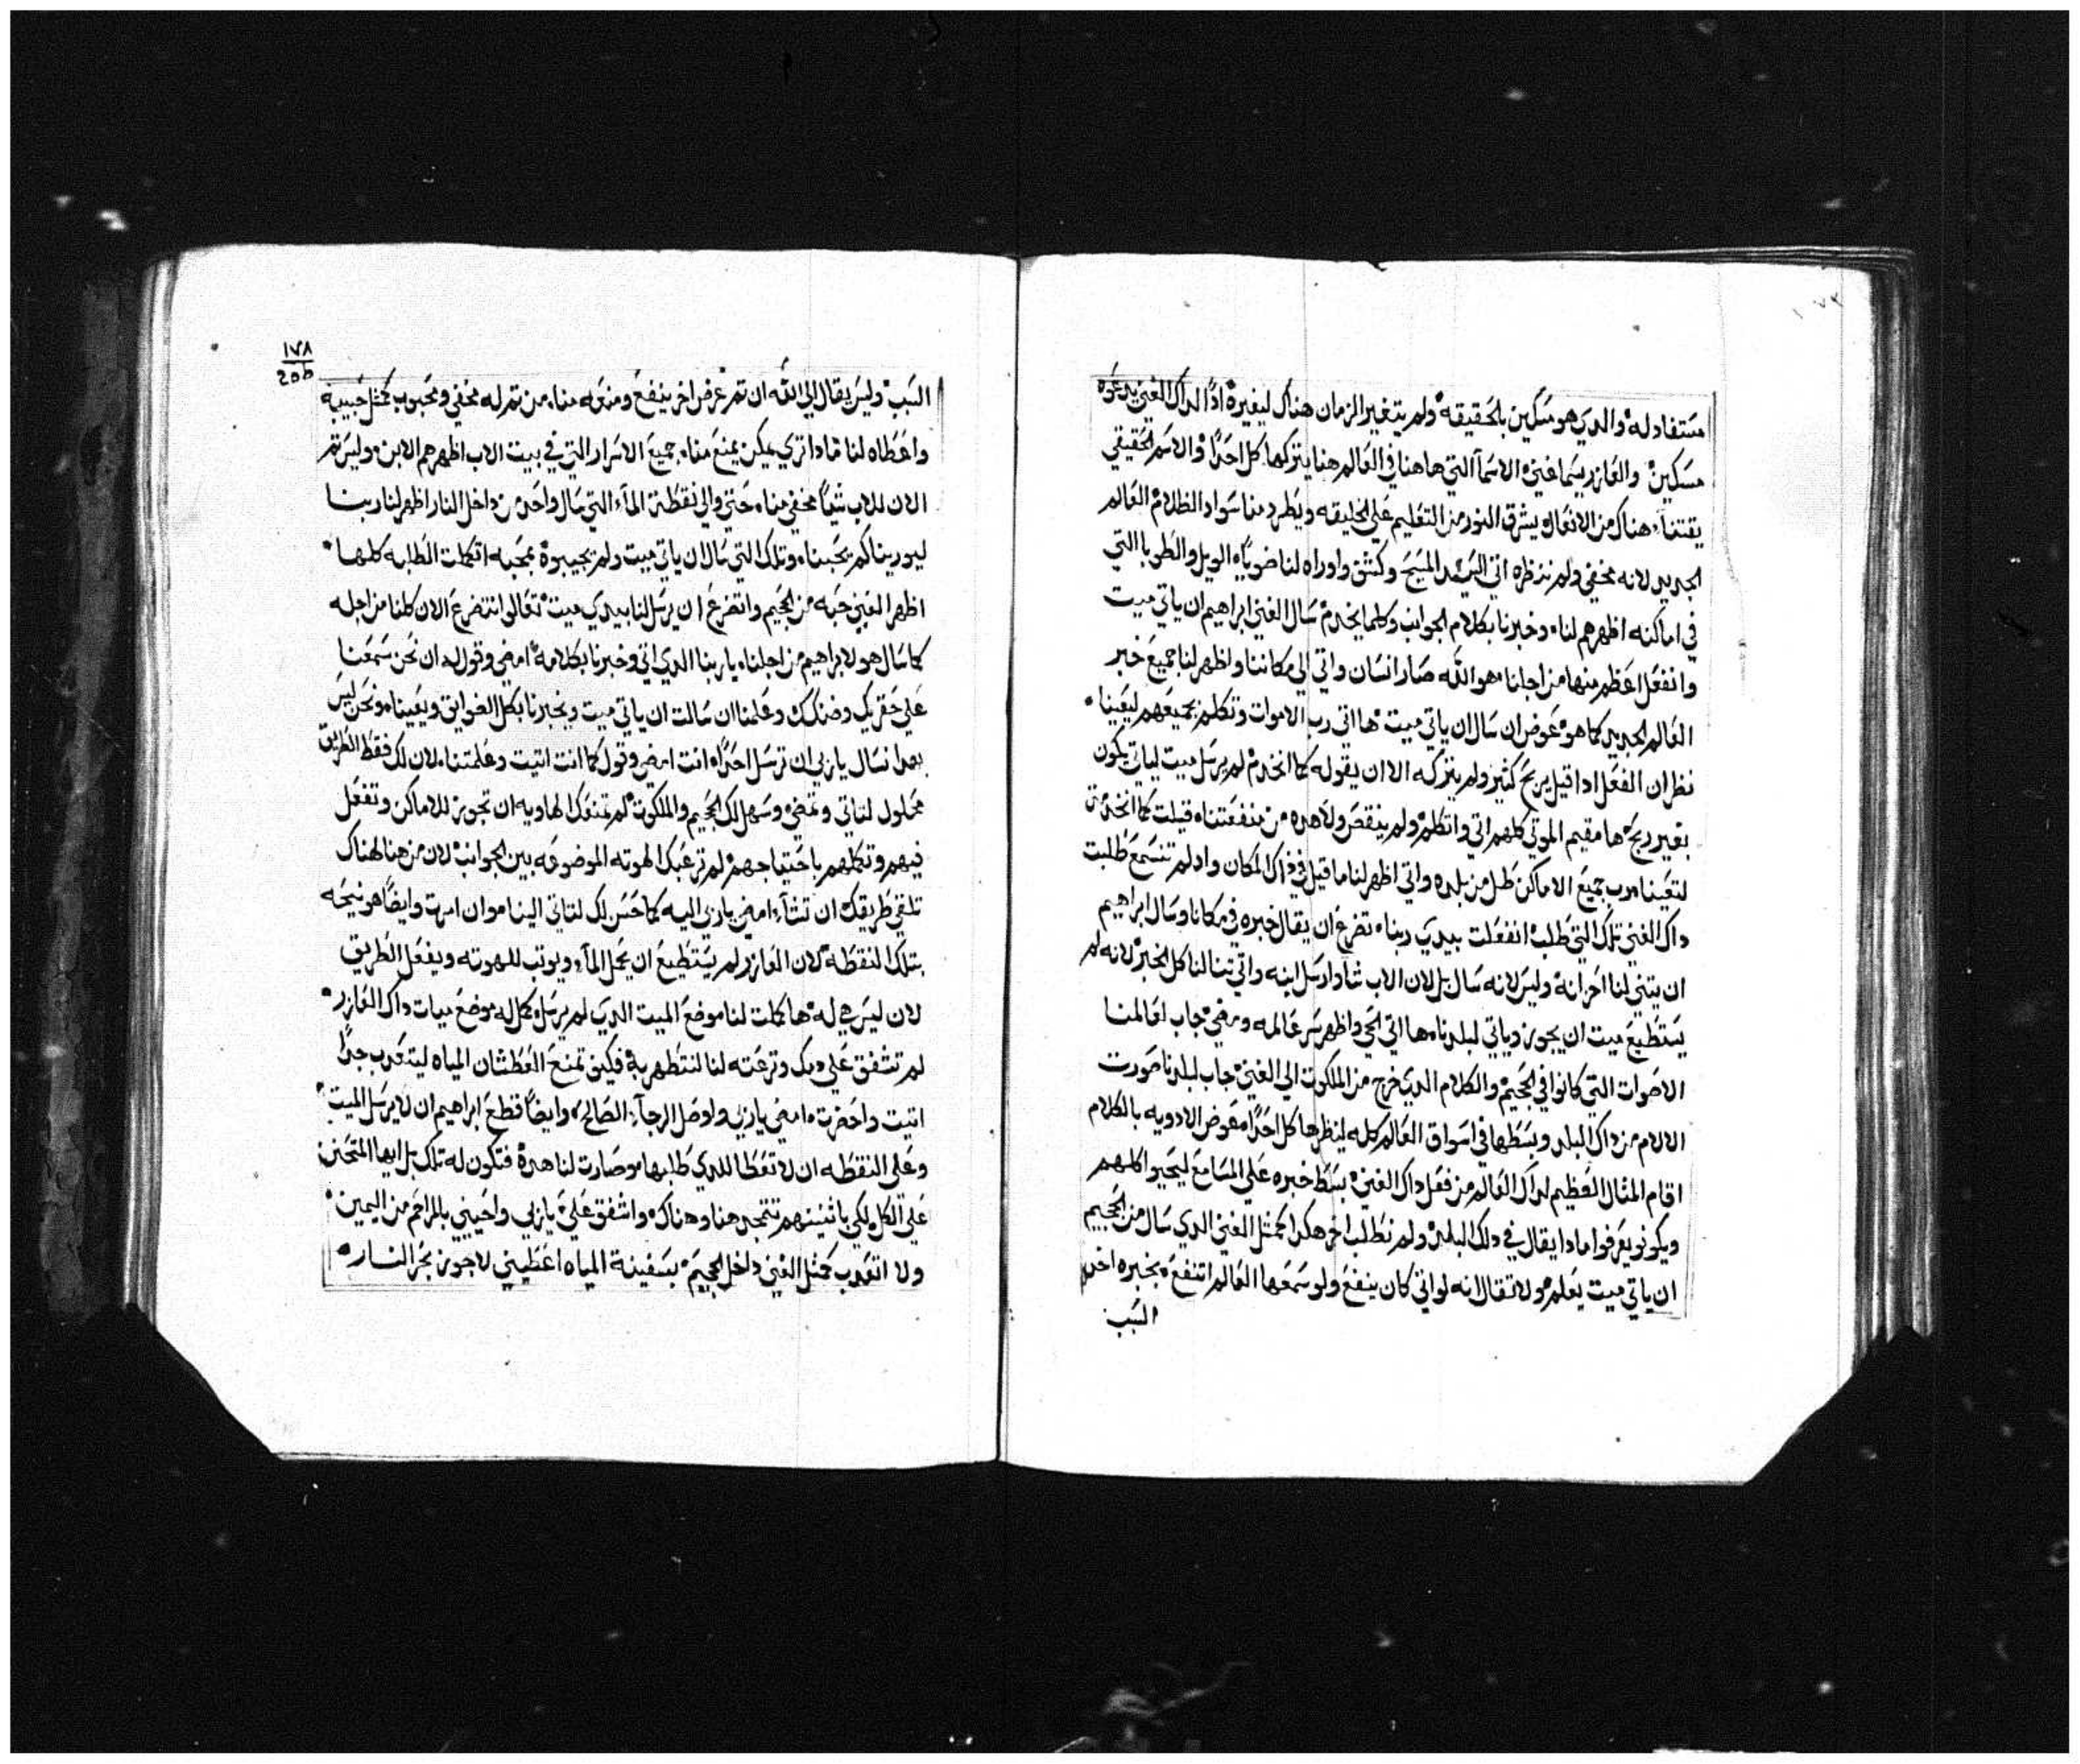 مستفاد له والدي هو مسكين بالحقيقه ولم يتغير الزمان هناك ليغيره اداً لداك الغني يدعوه
مسكين والعازر يسما غني الاسمآ التي هاهنا في العالم هنا يتركها كل احداً والاسم الحقيقي
يقتنآ هناك من الافعال ويشرق النور من التعليم علي الخليقه ويطرد منا سواد الظلام العالم
الجديد لانه مخفي ولم ننظره اتي السيد المسيح وكشفه واوراه لنا ضوياً الويل والطوبا التي
في اماكنه اظهرهم لنا وخبرنا بكلام الجوانب وكلما ينخدم سال الغني ابراهيم ان ياتي ميت
وانفعل اعظم منها من اجلنا هو الله صار انسان واتي الي مكاننا واظهر لنا جميع خبر
العالم الجديد كما هو عوض ان سال ان ياتي ميت ها اتي رب الاموات وتكلم بجميعهم ليعينا
نظر ان الفعل ادا قيل يربح كثير ولم يتركه الا ان يقوله كما انخدم لم يرسل ميت لياتي يكون
بغير ربح ها مقيم الموتي كلهم اتي واتكلم ولم ينقص ولا هده من منفعتنا قيلت كما انخدمت
لتعينا رب جميع الاماكن طل من بلده واتي اظهر لنا ما قيل في داك المكان واد لم تنسمع طلبت
داك الغني تلك التي طلب انفعلت بيدي ربنا تضرع ان يقال خبره في مكانا وسال ابراهيم
ان يتني لنا احزانه وليس لانه سال بل لان الاب شاء وارسل ابنه واتي تنا لنا كل الخبر لانه لم
يستطيع ميت ان يجوز وياتي لبلدنا ها اتي الحي واظهر سر عالمه ومضي جاب لعالمنا
الاصوات التي كانوا في الجحيم والكلام الدي خرج من الملكوت الي الغني جاب لبلدنا صورت
الالام من داك البلد وبسطها في اسواق العالم كله لينظرها كل احداً معوض الادويه بالكلام
اقام المثال العظيم لداك العالم من فعل داك الغني بسط خبره علي المسامع ليحيوا كلهم
ويكونو يعرفوا مادا يقال في دلك البلد ولم نطلب اخر هكدا كمثل الغني الدي سال من الجحيم
ان ياتي ميت يعلم ولا تقال انه لو اتي كان ينفع ولو سمعها العالم اتنفع بخبره اخد
السبب
١٧٨
206
السبب وليس يقال الي الله ان تم غرض اخر ينفع ومنعه منا من تم له مخفي ومحبوب كمثل حبيبه
واعطاه لنا مادا تري يمكن يمنع منا جميع الاسرار التي في بيت الاب اظهرهم الابن وليس تم
الان للاب شياً مخفي منا حتي والي نقطة المآء التي سال واحد من داخل النار اظهر لنا ربنا
ليورينا كم يحبنا وتلك التي سال ان ياتي ميت ولم يجيبوه بمحبه اتكملت الطلبه كلها
اظهر الغني حبه من الجحيم واتضرع ان يرسل لنا بيدي ميت تعالوا نتضرع الان كلنا من اجله
كما سال هو لابراهيم من اجلنا يا ربنا الدي اتي وخبرنا بكلامه امضي وقول له ان نحن سمعنا
علي حقريك وضنكك وعلمنا ان سالت ان ياتي ميت ويخبرنا بكل الضوايق ويعينا ونحن ليس
بعد انسال يا ربي ان ترسل احداً انت امضي وقول كما انت اتيت وعلمتنا لان لك فقط الطريق
محلول لتاتي وتمضي وسهل لك الجحيم والملكوت لم تمنعك الهاويه ان تجوز للاماكن وتفعل
فيهم وتكلمهم باحتياجهم لم ترعبك الهوته الموضوعه بين الجوانب لان من هنا لهناك
تلقي طريقك ان تشآء امضي يا ربي اليه كما حسن لك لتاتي الينا وان امرت وايضاً هو نيحه
بتلك النقطه لان العازر لم يستطيع ان يحمل المآء ويوتب للهوته ويفعل الطريق
لان ليس هي له ها كملت لنا موضع الميت الدي لم يرسل كمل له موضع ميات داك العازر
لم تشفق علي دمك وترعته لنا لنتطهر به فكيف تمنع العطشان المياه ليتعدب جداً
اتيت واحضرت امضي يا ربي واوصل الرجآء الصالح وايضاً قطع ابراهيم ان لا يرسل الميت
وعلي النقطه ان لا تعطا للدي طلبها وصارت لنا هده فتكون له تلك بل ايها المتحنن
علي الكل لكي باثنينهم تتمجد هنا وهناك واشفق علي يا ربي واحييني بالمراحم من اليمين
ولا اتعدب كمثل الغني داخل الجحيم بسفينة المياه اعطيني لاجوز بحر النار